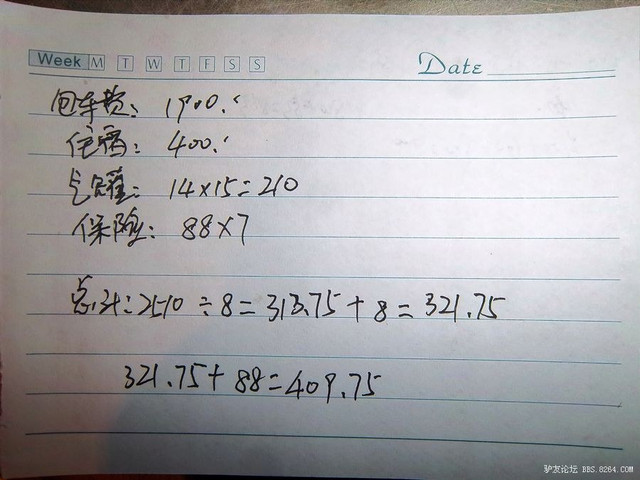 Week M T W T F S S Date
包车费: 1900.
住宿: 400.
气罐: 14×15=210
保险: 88×7
总计: 2510÷8=313.75+8=321.75
321.75+88=409.75
驴友论坛 BBS.8264.com